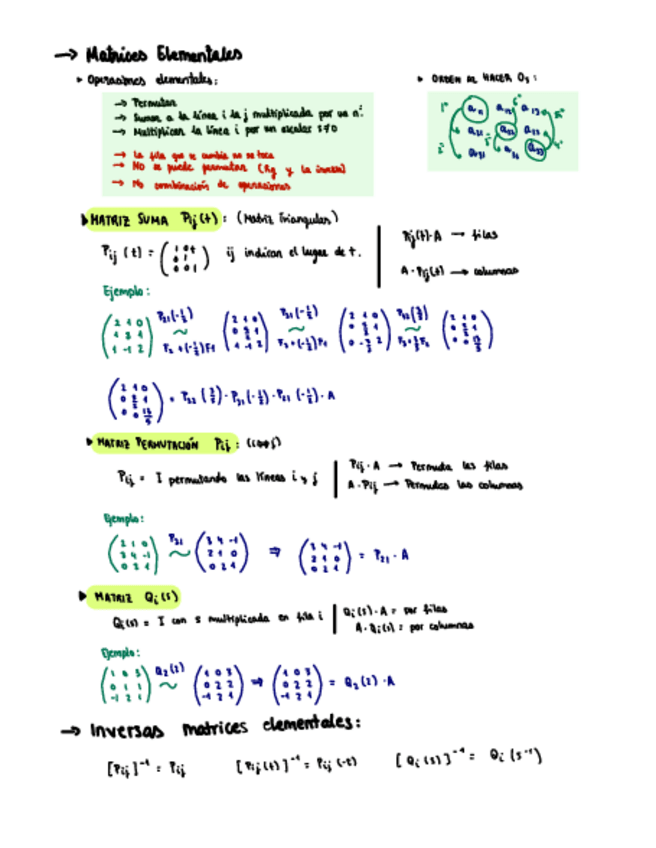 → Matrices Elementales
▸ Operaciones elementales:
→ Permutar
→ Sumar a la línea i la j multiplicada por un nº
→ Multiplicar la línea i por un escalar s≠0
→ La fila que se cambia no se toca
→ No se puede permutar (Rg y la inversa)
→ No combinación de operaciones
▸ ORDEN AL HACER 0s:
▸ MATRIZ SUMA Pij(t): (Matriz Triangular)
Pij(t) =
ij indican el lugar de t.
Pij(t)·A → filas
A·Pij(t) → columnas
Ejemplo:
P21(-1/2)
F2+(-1/2)F1
P31(-1/2)
F3+(-1/2)F1
· P31(-1/2) · P21(-1/2) · A
▸ MATRIZ PERMUTACIÓN Pij: (i≠j)
Pij = I permutando las líneas i y j
Pij · A → Permuta las filas
A · Pij → Permuta las columnas
Ejemplo:
(2 1 0
3 4 -1
0 2 1) P21 ~ (3 4 -1
2 1 0
0 2 1) ⇒ (3 4 -1
2 1 0
0 2 1) = P21 · A
▸ MATRIZ Qi(s)
Qi(s) = I con s multiplicada en fila i
Qi(s)·A = por filas
A·Qi(s) = por columnas
Ejemplo:
(1 0 3
0 1 1
-1 2 1) Q2(2) ~ (1 0 3
0 2 2
-1 2 1) ⇒ (1 0 3
0 2 2
-1 2 1) = Q2(2) · A
→ Inversas matrices elementales:
[Pij]⁻¹ = Pij [Pij(t)]⁻¹ = Pij(-t) [Qi(s)]⁻¹ = Qi(s⁻¹)